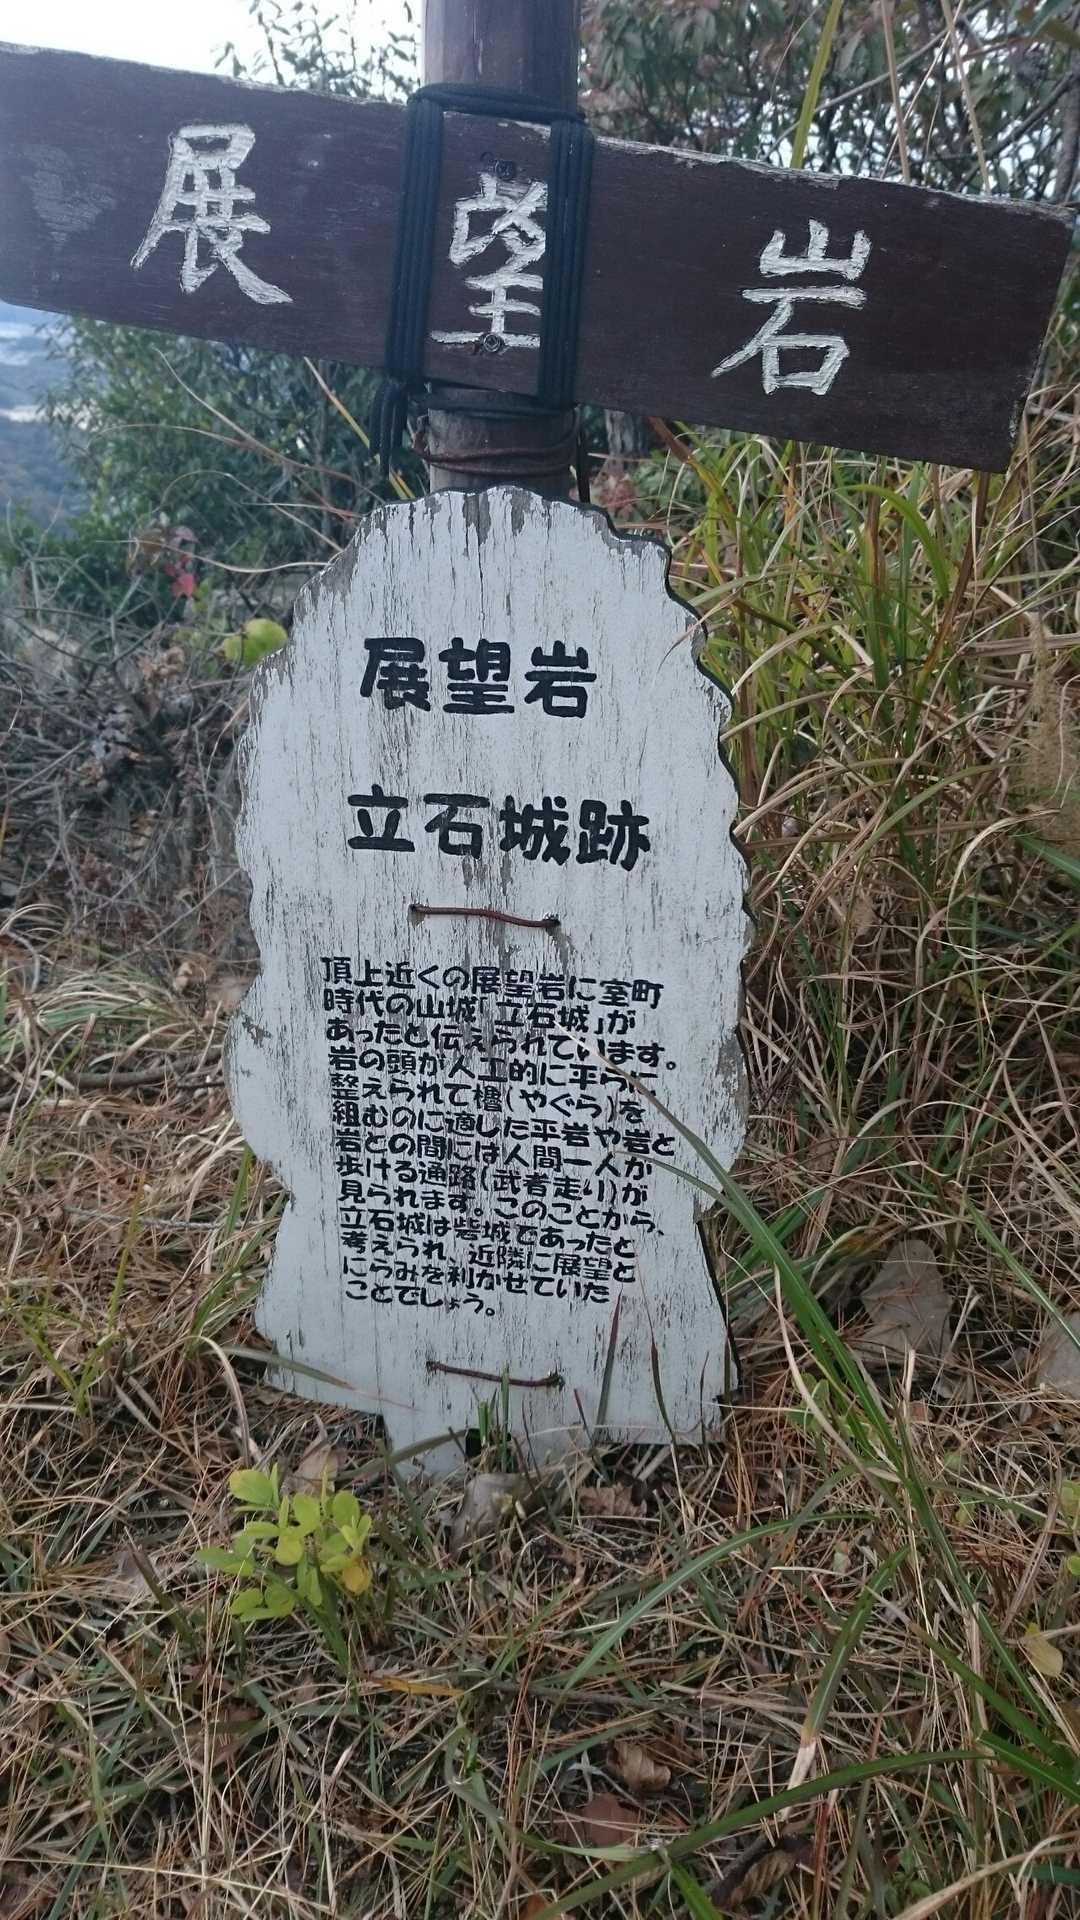 展望岩
展望岩
立石城跡
頂上近くの展望岩に室町
時代の山城「立石城」が
あったと伝えられています。
岩の頭が人工的に平らに
整えられて櫓(やぐら)を
組むのに適した平岩や岩と
岩との間には人間一人が
歩ける通路(武者走り)が
見られます。このことから、
立石城は砦城であったと
考えられ、近隣に展望と
にらみを利かせていた
ことでしょう。